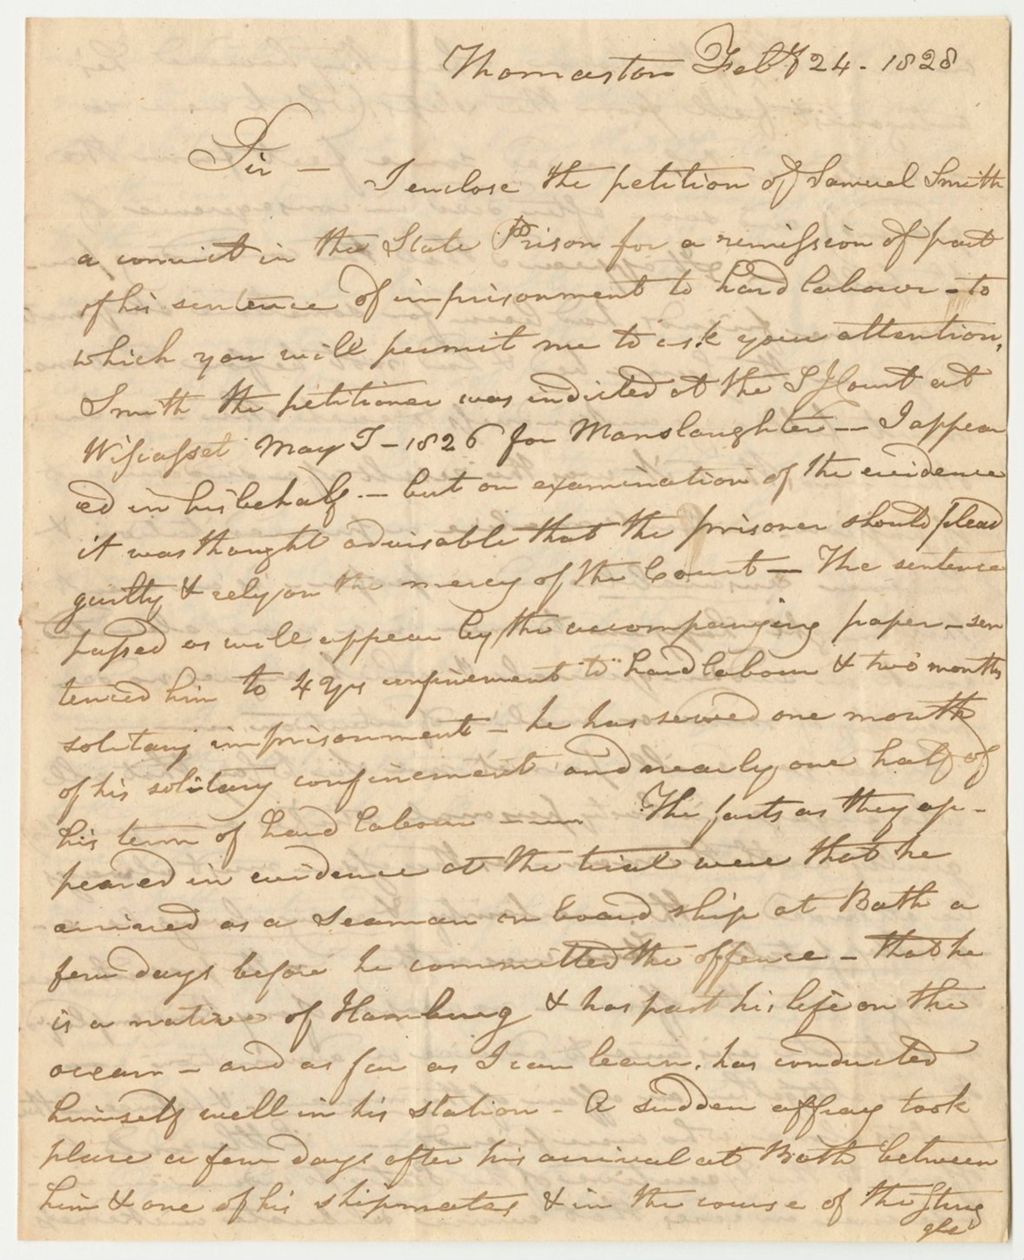 Thomaston Feby 24 - 1828
Sir — I enclose the petition of Samuel Smith
a convict in the State Prison for a remission of part
of his sentence of imprisonment to hard labour - to
which you will permit me to ask your attention,
Smith the petitioner was indicted at the S J Court at
Wiscasset May T - 1826 for Manslaughter — I appear
ed in his behalf - but on examination of the evidence
it was thought advisable that the prisoner should plead
guilty & rely on the mercy of the Court — The sentence
passed as will appear by the accompanying paper - sen
tenced him to 4 Yrs confinement to hard labour & two months
solitary imprisonment - he has served one month
of his solitary confinement and nearly one half of
his term of hard labour — The facts as they ap-
peared in evidence at the trial were that he
arrived as a Seaman on board ship at Bath a
few days before he committed the offence - that he
is a native of Hamburg & has past his life on the
ocean - and as far as I can learn, has conducted
himself well in his station - A sudden affray took
place a few days after his arrival at Bath between
him & one of his shipmates & in the course of the strug
gle